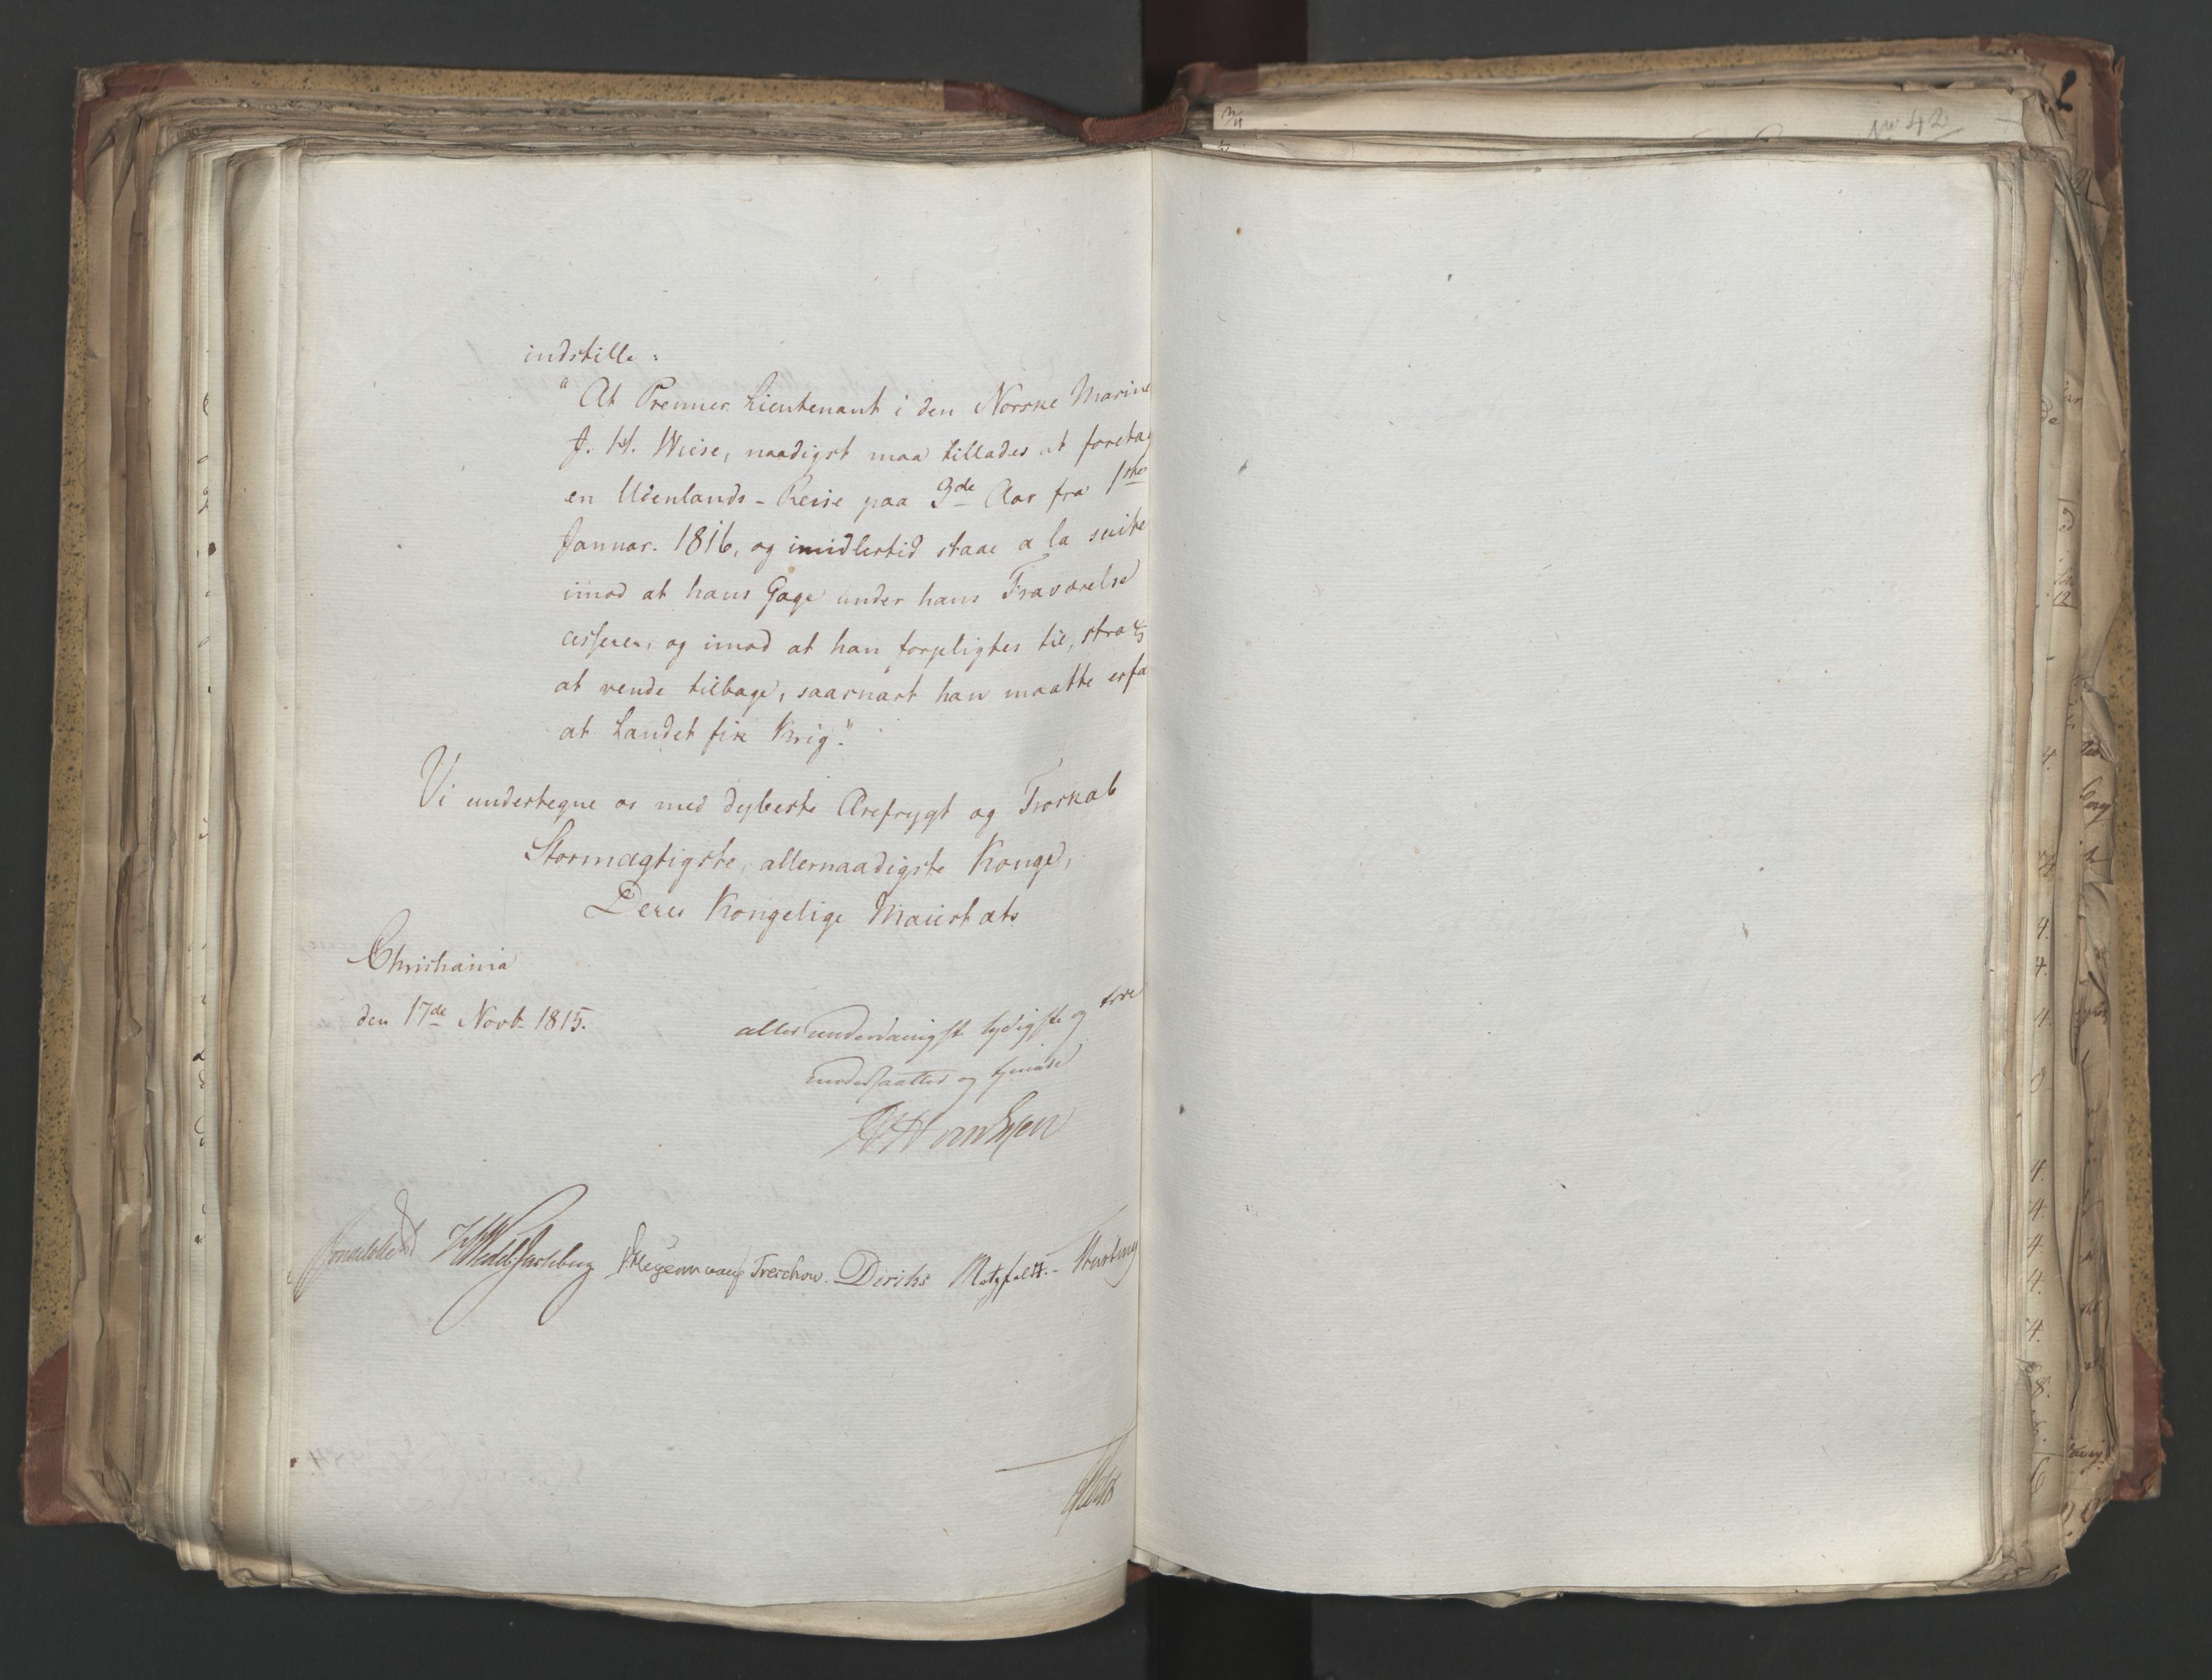 No 42
indstille:
"At Premier Lieutenant i den Norske Marine
J. H. Wiese, naadigst maa tillades at foretag
en Udenlands-Reise paa 3de Aar fra 1ste
Januar. 1816, og imidlertid staae a la suite
imod at hans Gage under hans Fraværelse
cesserer, og imod at han forpligtes til, strax
at vende tilbage, saasnart han maatte erfa
at Landet fik Krig."
Vi undertegne os med dybeste Ærefrygt og Troskab
Stormægtigste, allernaadigste Konge,
Deres Kongelige Maiestæts
Christiania
den 17de Novb. 1815.
allerunderdanigste lydigste og troe
undersaatter og tjenere
Sommerhielm WedelJarlsberg Hegermann Treschow. Diriks Motzfeldt.